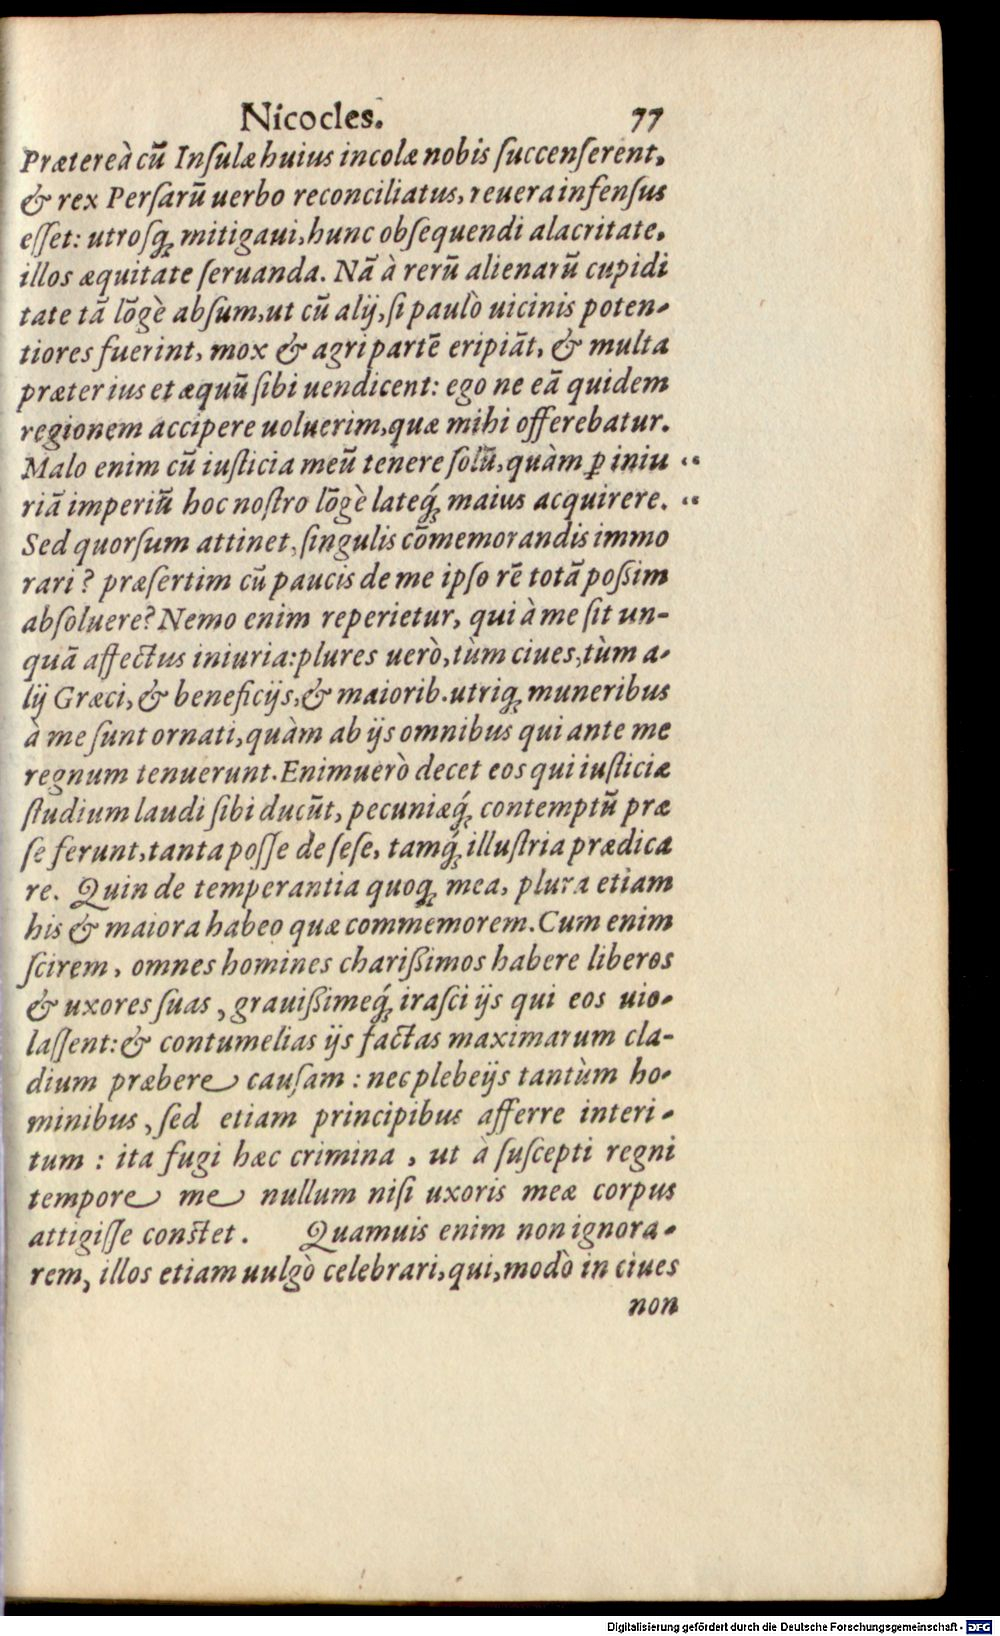 Nicocles. 77
Prætereà cũ Inſulæ huius incolæ nobis ſuccenſerent,
& rex Perſarũ uerbo reconciliatus, reuera infenſus
eſſet: utroſq; mitigaui, hunc obſequendi alacritate,
illos æquitate ſeruanda. Nã à rerũ alienarũ cupidi
tate tã lõgè abſum, ut cũ alij, ſi paulò uicinis poten-
tiores fuerint, mox & agri partẽ eripiãt, & multa
præter ius et æquũ ſibi uendicent: ego ne eã quidem
regionem accipere uoluerim, quæ mihi offerebatur.
Malo enim cũ iuſticia meũ tenere ſolũ, quàm ꝑ iniu "
riã imperiũ hoc noſtro lõgè lateq́; maius acquirere. "
Sed quorſum attinet, ſingulis cõmemorandis immo
rari? præſertim cũ paucis de me ipſo rẽ totã poßim
abſoluere? Nemo enim reperietur, qui à me ſit un-
quã affectus iniuria: plures uerò, tùm ciues, tùm a-
lij Græci, & beneficijs, & maiorib. utriq; muneribus
à me ſunt ornati, quàm ab ijs omnibus qui ante me
regnum tenuerunt. Enimuerò decet eos qui iuſticiæ
ſtudium laudi ſibi ducũt, pecuniæq́; contemptũ præ
ſe ferunt, tanta poſſe de ſeſe, tamq́; illuſtria prædica
re. Quin de temperantia quoq; mea, plura etiam
his & maiora habeo quæ commemorem. Cum enim
ſcirem, omnes homines charißimos habere liberos
& uxores ſuas, grauißimeq́; iraſci ijs qui eos uio-
laſſent: & contumelias ijs factas maximarum cla-
dium præbere cauſam: nec plebeijs tantùm ho-
minibus, ſed etiam principibus afferre interi-
tum: ita fugi hæc crimina, ut à ſuſcepti regni
tempore me nullum niſi uxoris meæ corpus
attigiſſe conſtet. Quamuis enim non ignora-
rem, illos etiam uulgò celebrari, qui, modò in ciues
non
Digitalisierung gefördert durch die Deutsche Forschungsgemeinschaft - DFG